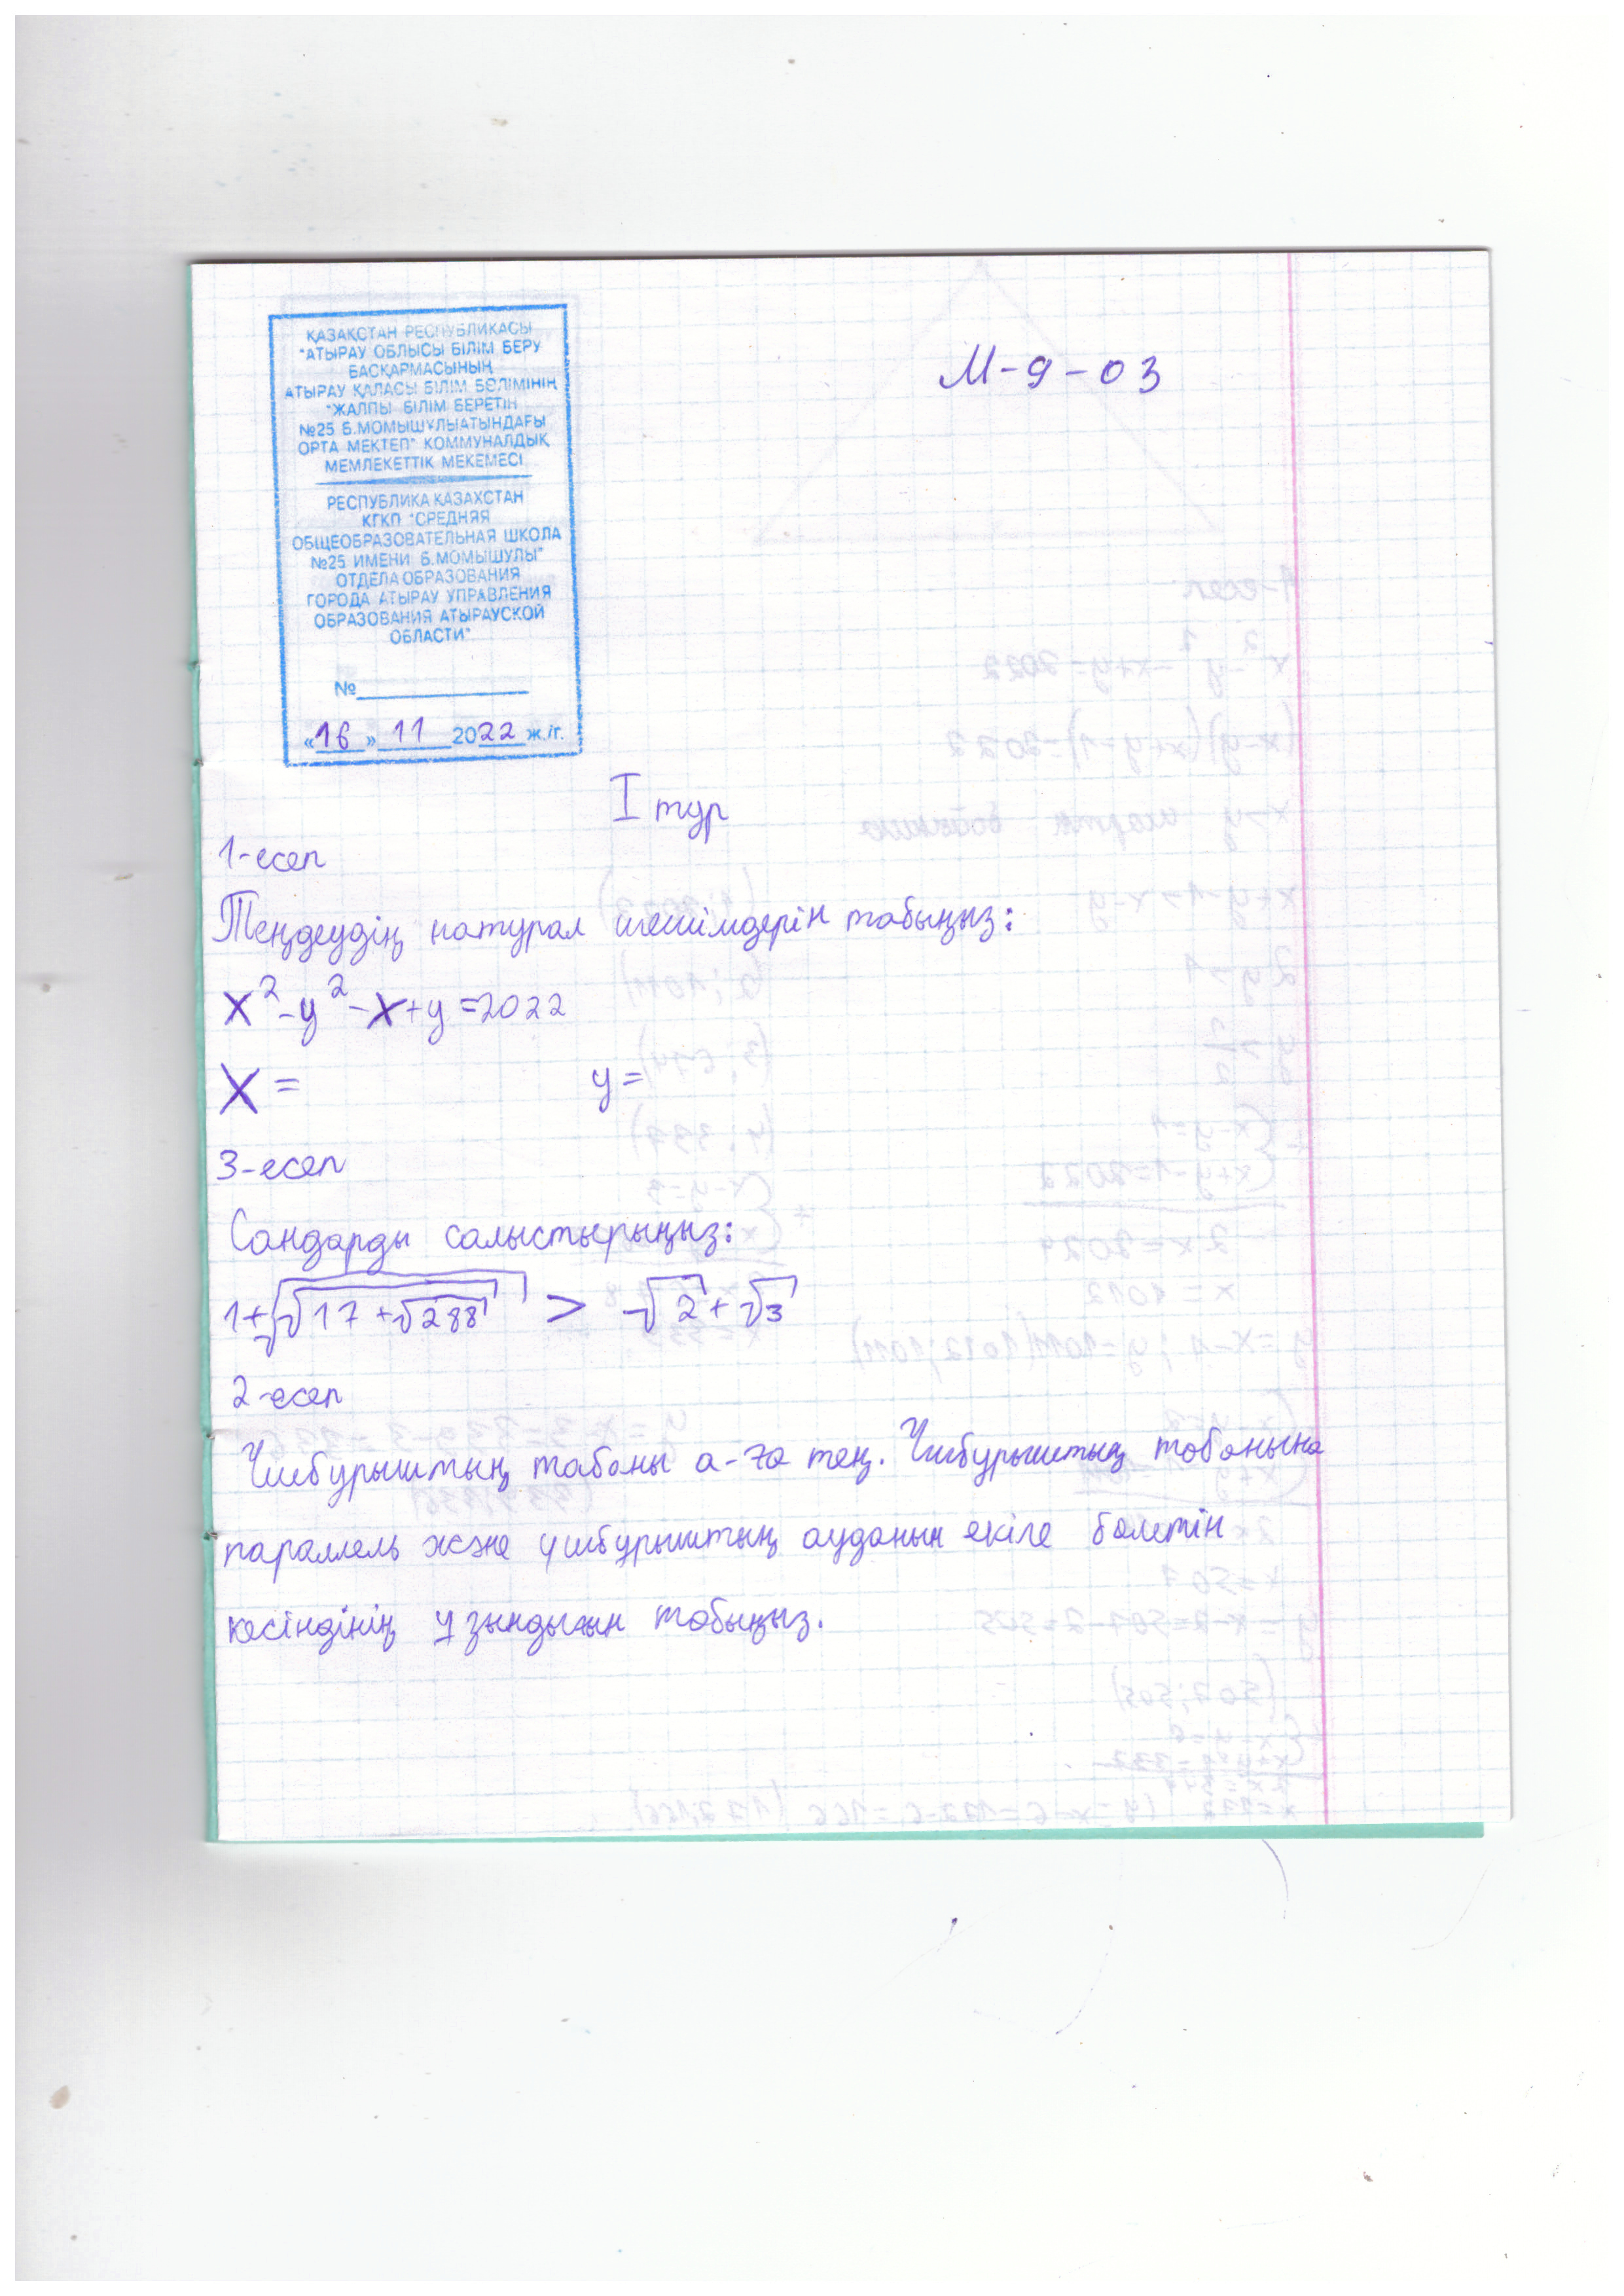 ҚАЗАҚСТАН РЕСПУБЛИКАСЫ
"АТЫРАУ ОБЛЫСЫ БІЛІМ БЕРУ
БАСҚАРМАСЫНЫҢ
АТЫРАУ ҚАЛАСЫ БІЛІМ БӨЛІМІНІҢ
"ЖАЛПЫ БІЛІМ БЕРЕТІН
№25 Б.МОМЫШҰЛЫАТЫНДАҒЫ
ОРТА МЕКТЕП" КОММУНАЛДЫҚ
МЕМЛЕКЕТТІК МЕКЕМЕСІ
РЕСПУБЛИКА КАЗАХСТАН
КГКП "СРЕДНЯЯ
ОБЩЕОБРАЗОВАТЕЛЬНАЯ ШКОЛА
№25 ИМЕНИ Б.МОМЫШУЛЫ"
ОТДЕЛА ОБРАЗОВАНИЯ
ГОРОДА АТЫРАУ УПРАВЛЕНИЯ
ОБРАЗОВАНИЯ АТЫРАУСКОЙ
ОБЛАСТИ"
№
«16» 11 2022 ж./г.
М-9-03
I тур
1-есеп
Теңдеудің натурал шешімдерін табыңыз:
x²-y²-x+y=2022
x= y=
3-есеп
Сандарды салыстырыңыз:
1+√√17+√288 > √2+√3
2-есеп
Үшбұрыштың табаны а-ға тең. Үшбұрыштың табанына
параллель және үшбұрыштың ауданын екіге бөлетін
кесіндінің ұзындығын табыңыз.